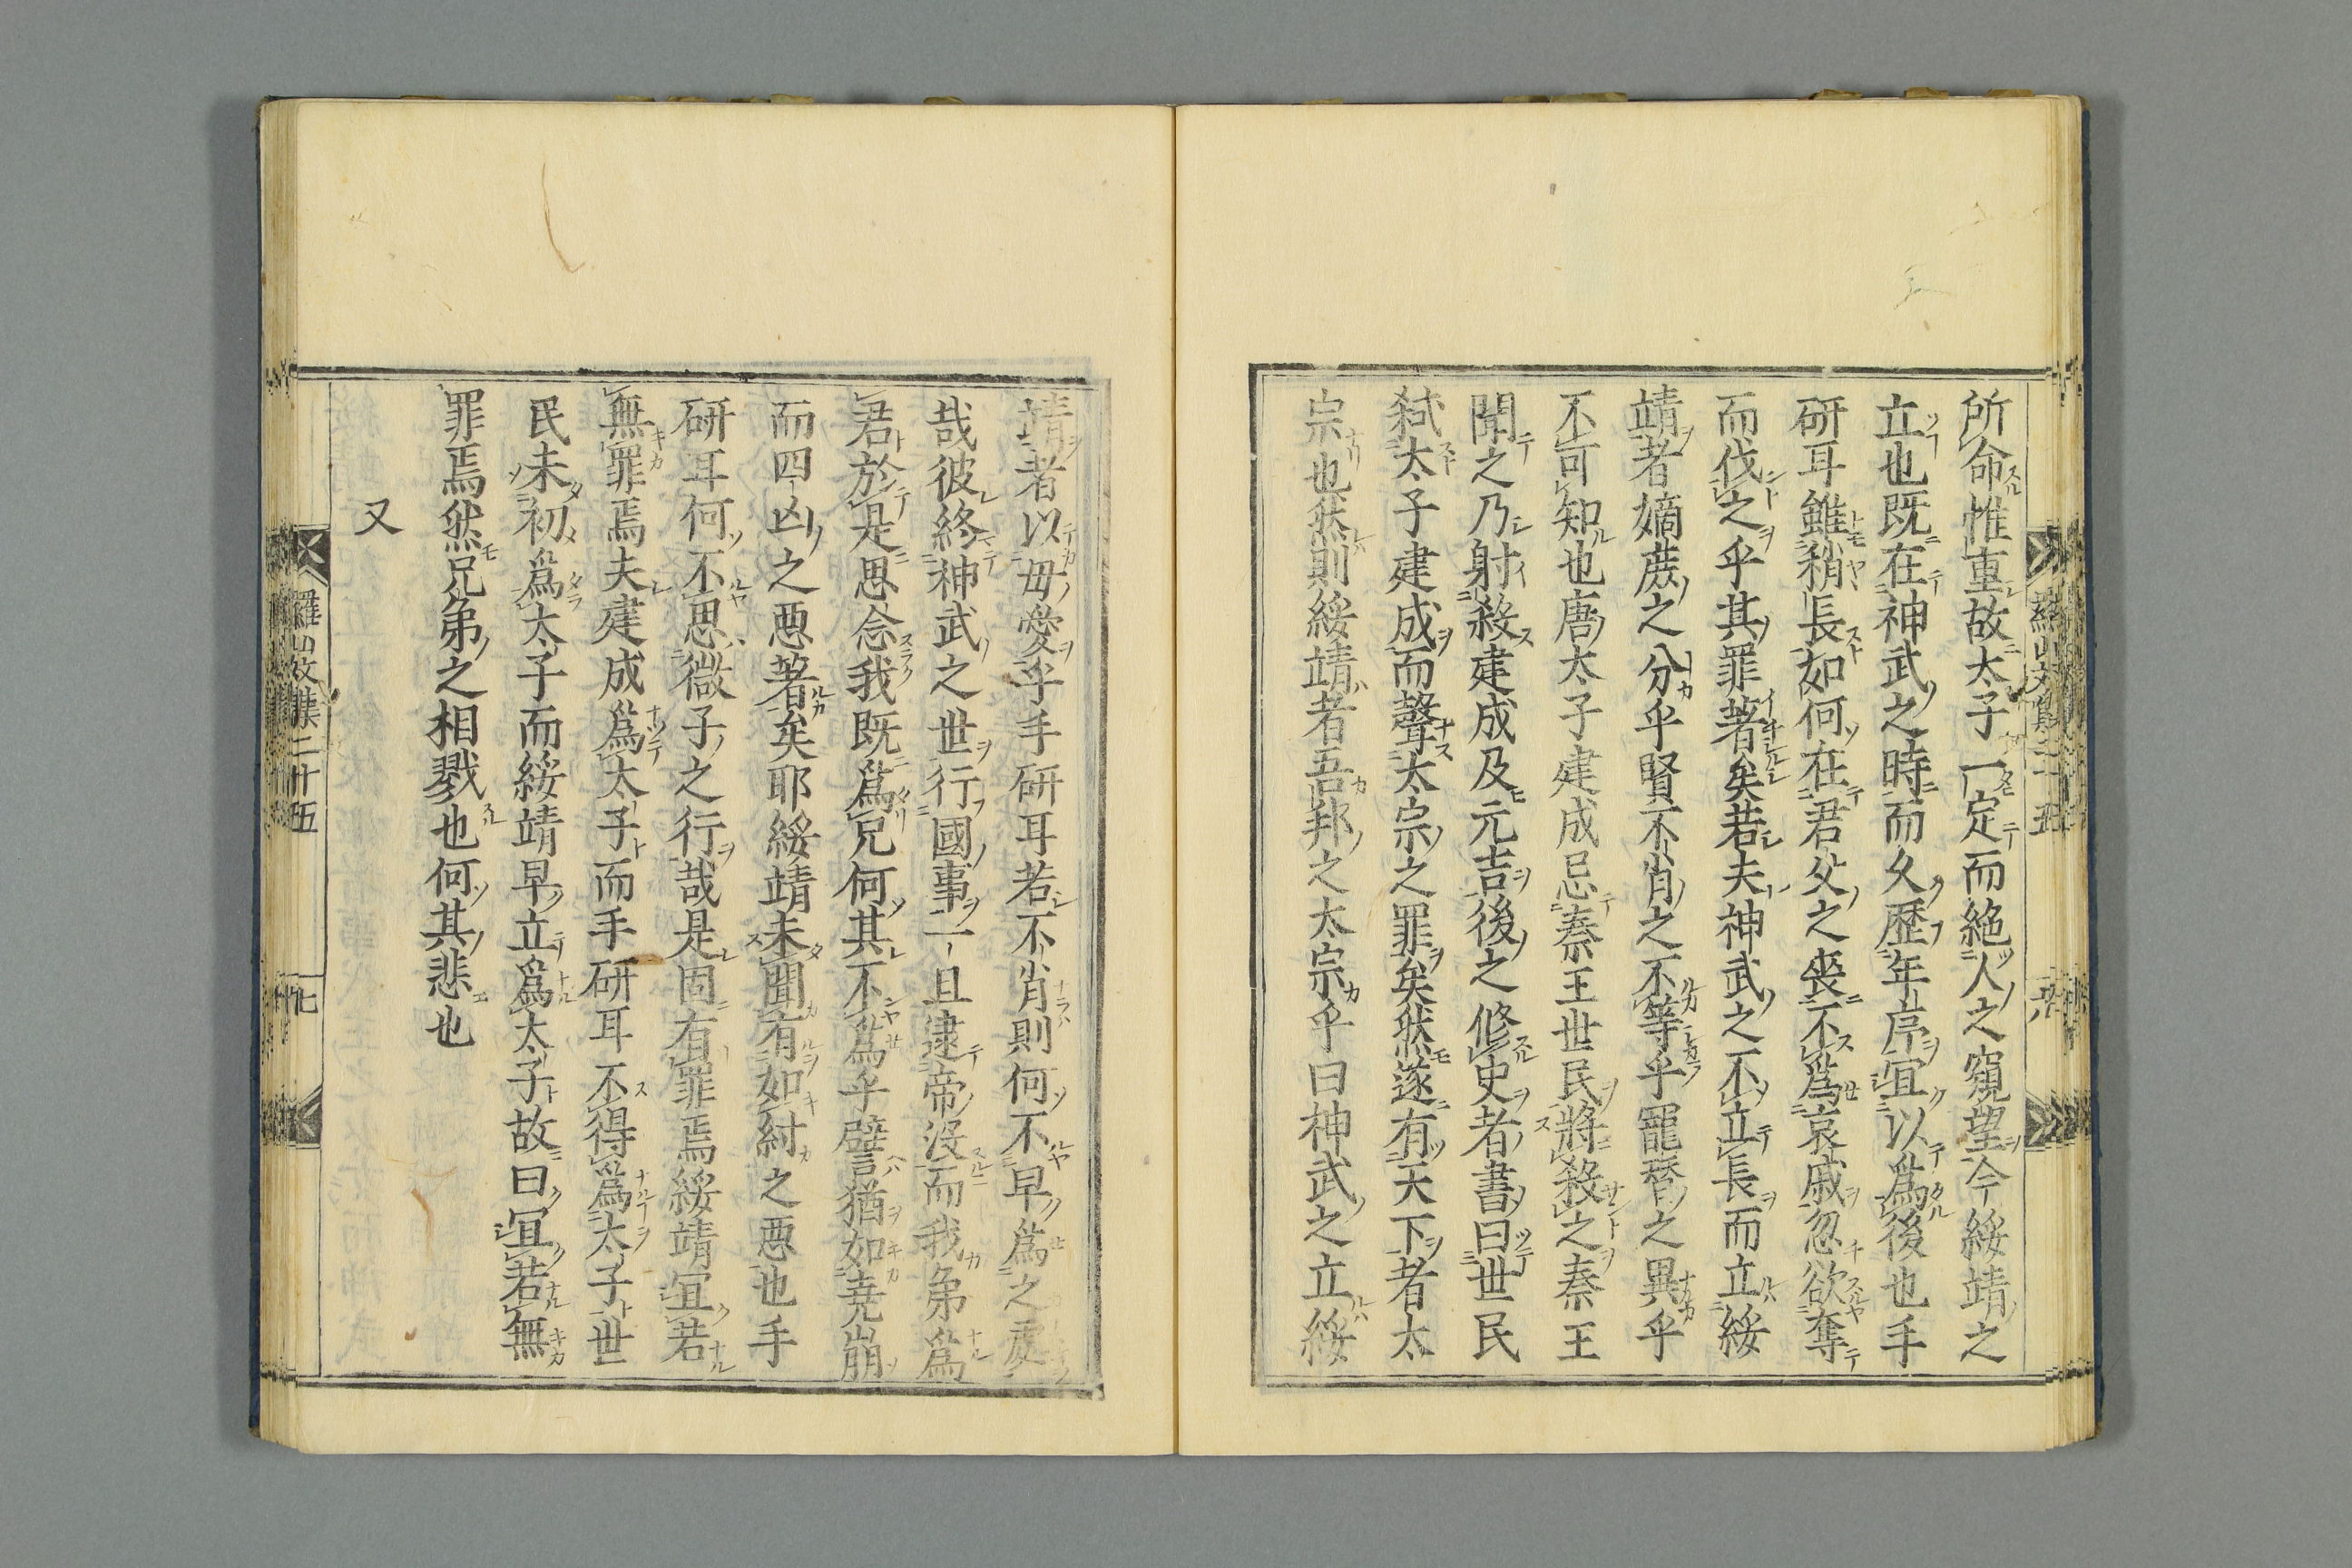 所命惟重故太子一定而絶人之窺望今綏靖之
立也既在神武之時而久歴年序宜以爲後也手
研耳雖稍長如何在君父之喪不爲哀戚忽欲奪
而伐之乎其罪著矣若夫神武之不立長而立綏
靖者嫡庻之分乎賢不肖之不等乎寵替之異乎
不可知也唐太子建成忌秦王世民將殺之秦王
聞之乃射殺建成及元吉後之修史者書曰世民
弑太子建成而聲太宗之罪矣然遂有天下者太
宗也然則綏靖者吾邦之太宗乎曰神武之立綏
靖者以毋愛乎手研耳若不肖則何不早爲之處
哉彼終神武之世行國事一且逮帝没而我弟爲
君於是思念我既爲兄何其不爲乎譬猶如堯崩
而四凶之悪著矣耶綏靖未聞有如紂之悪也手
研耳何不思微子之行哉是固有罪焉綏靖宜若
無罪焉夫建成爲太子而手研耳不得爲太子世
民未初爲太子而綏靖早立爲太子故曰宜若無
罪焉然兄弟之相戮也何其悲也
又
羅山文集二十五
七